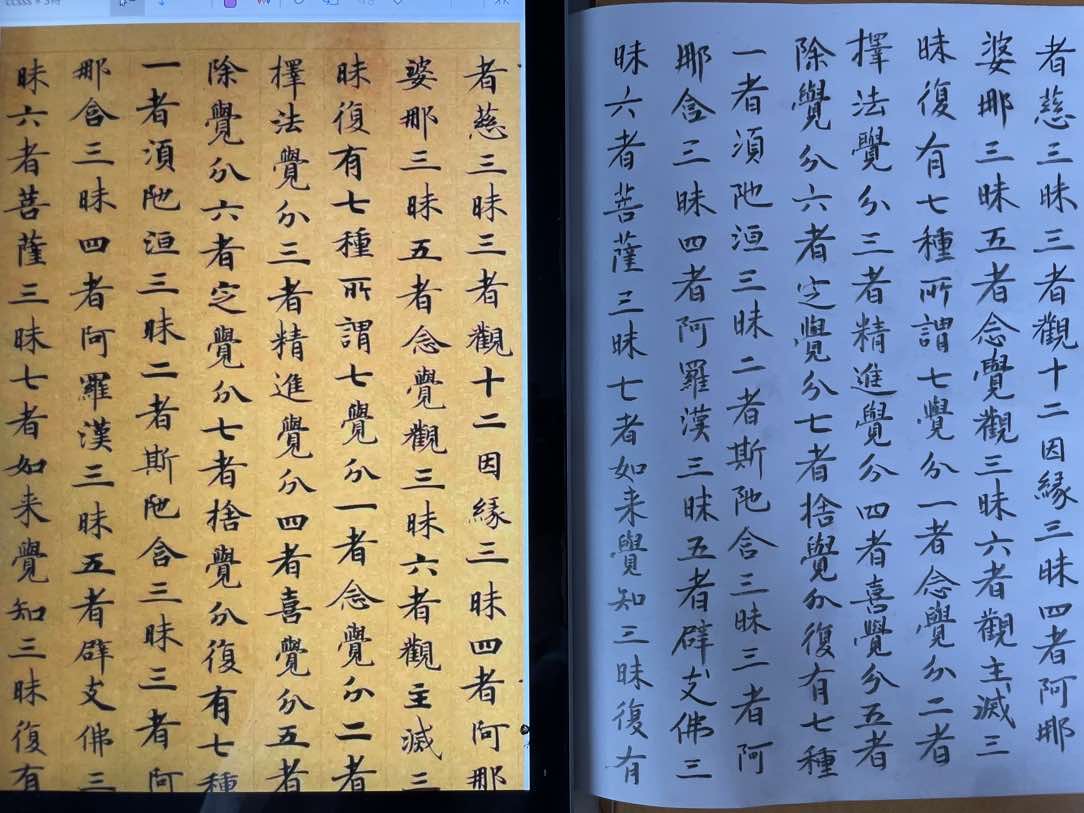 者慈三昧三者觀十二因緣三昧四者阿那
婆那三昧五者念覺觀三昧六者觀主滅三
昧復有七種所謂七覺分一者念覺分二者
擇法覺分三者精進覺分四者喜覺分五者
除覺分六者定覺分七者捨覺分復有七種
一者須陁洹三昧二者斯陁含三昧三者阿
那含三昧四者阿羅漢三昧五者辟支佛三
昧六者菩薩三昧七者如来覺知三昧復有
者慈三昧三者觀十二因緣三昧四者阿那
婆那三昧五者念覺觀三昧六者觀主滅三
昧復有七種所謂七覺分一者念覺分二者
擇法覺分三者精進覺分四者喜覺分五者
除覺分六者定覺分七者捨覺分復有七種
一者須陁洹三昧二者斯陁含三昧三者阿
那含三昧四者阿羅漢三昧五者辟支佛三
昧六者菩薩三昧七者如来覺知三昧復有